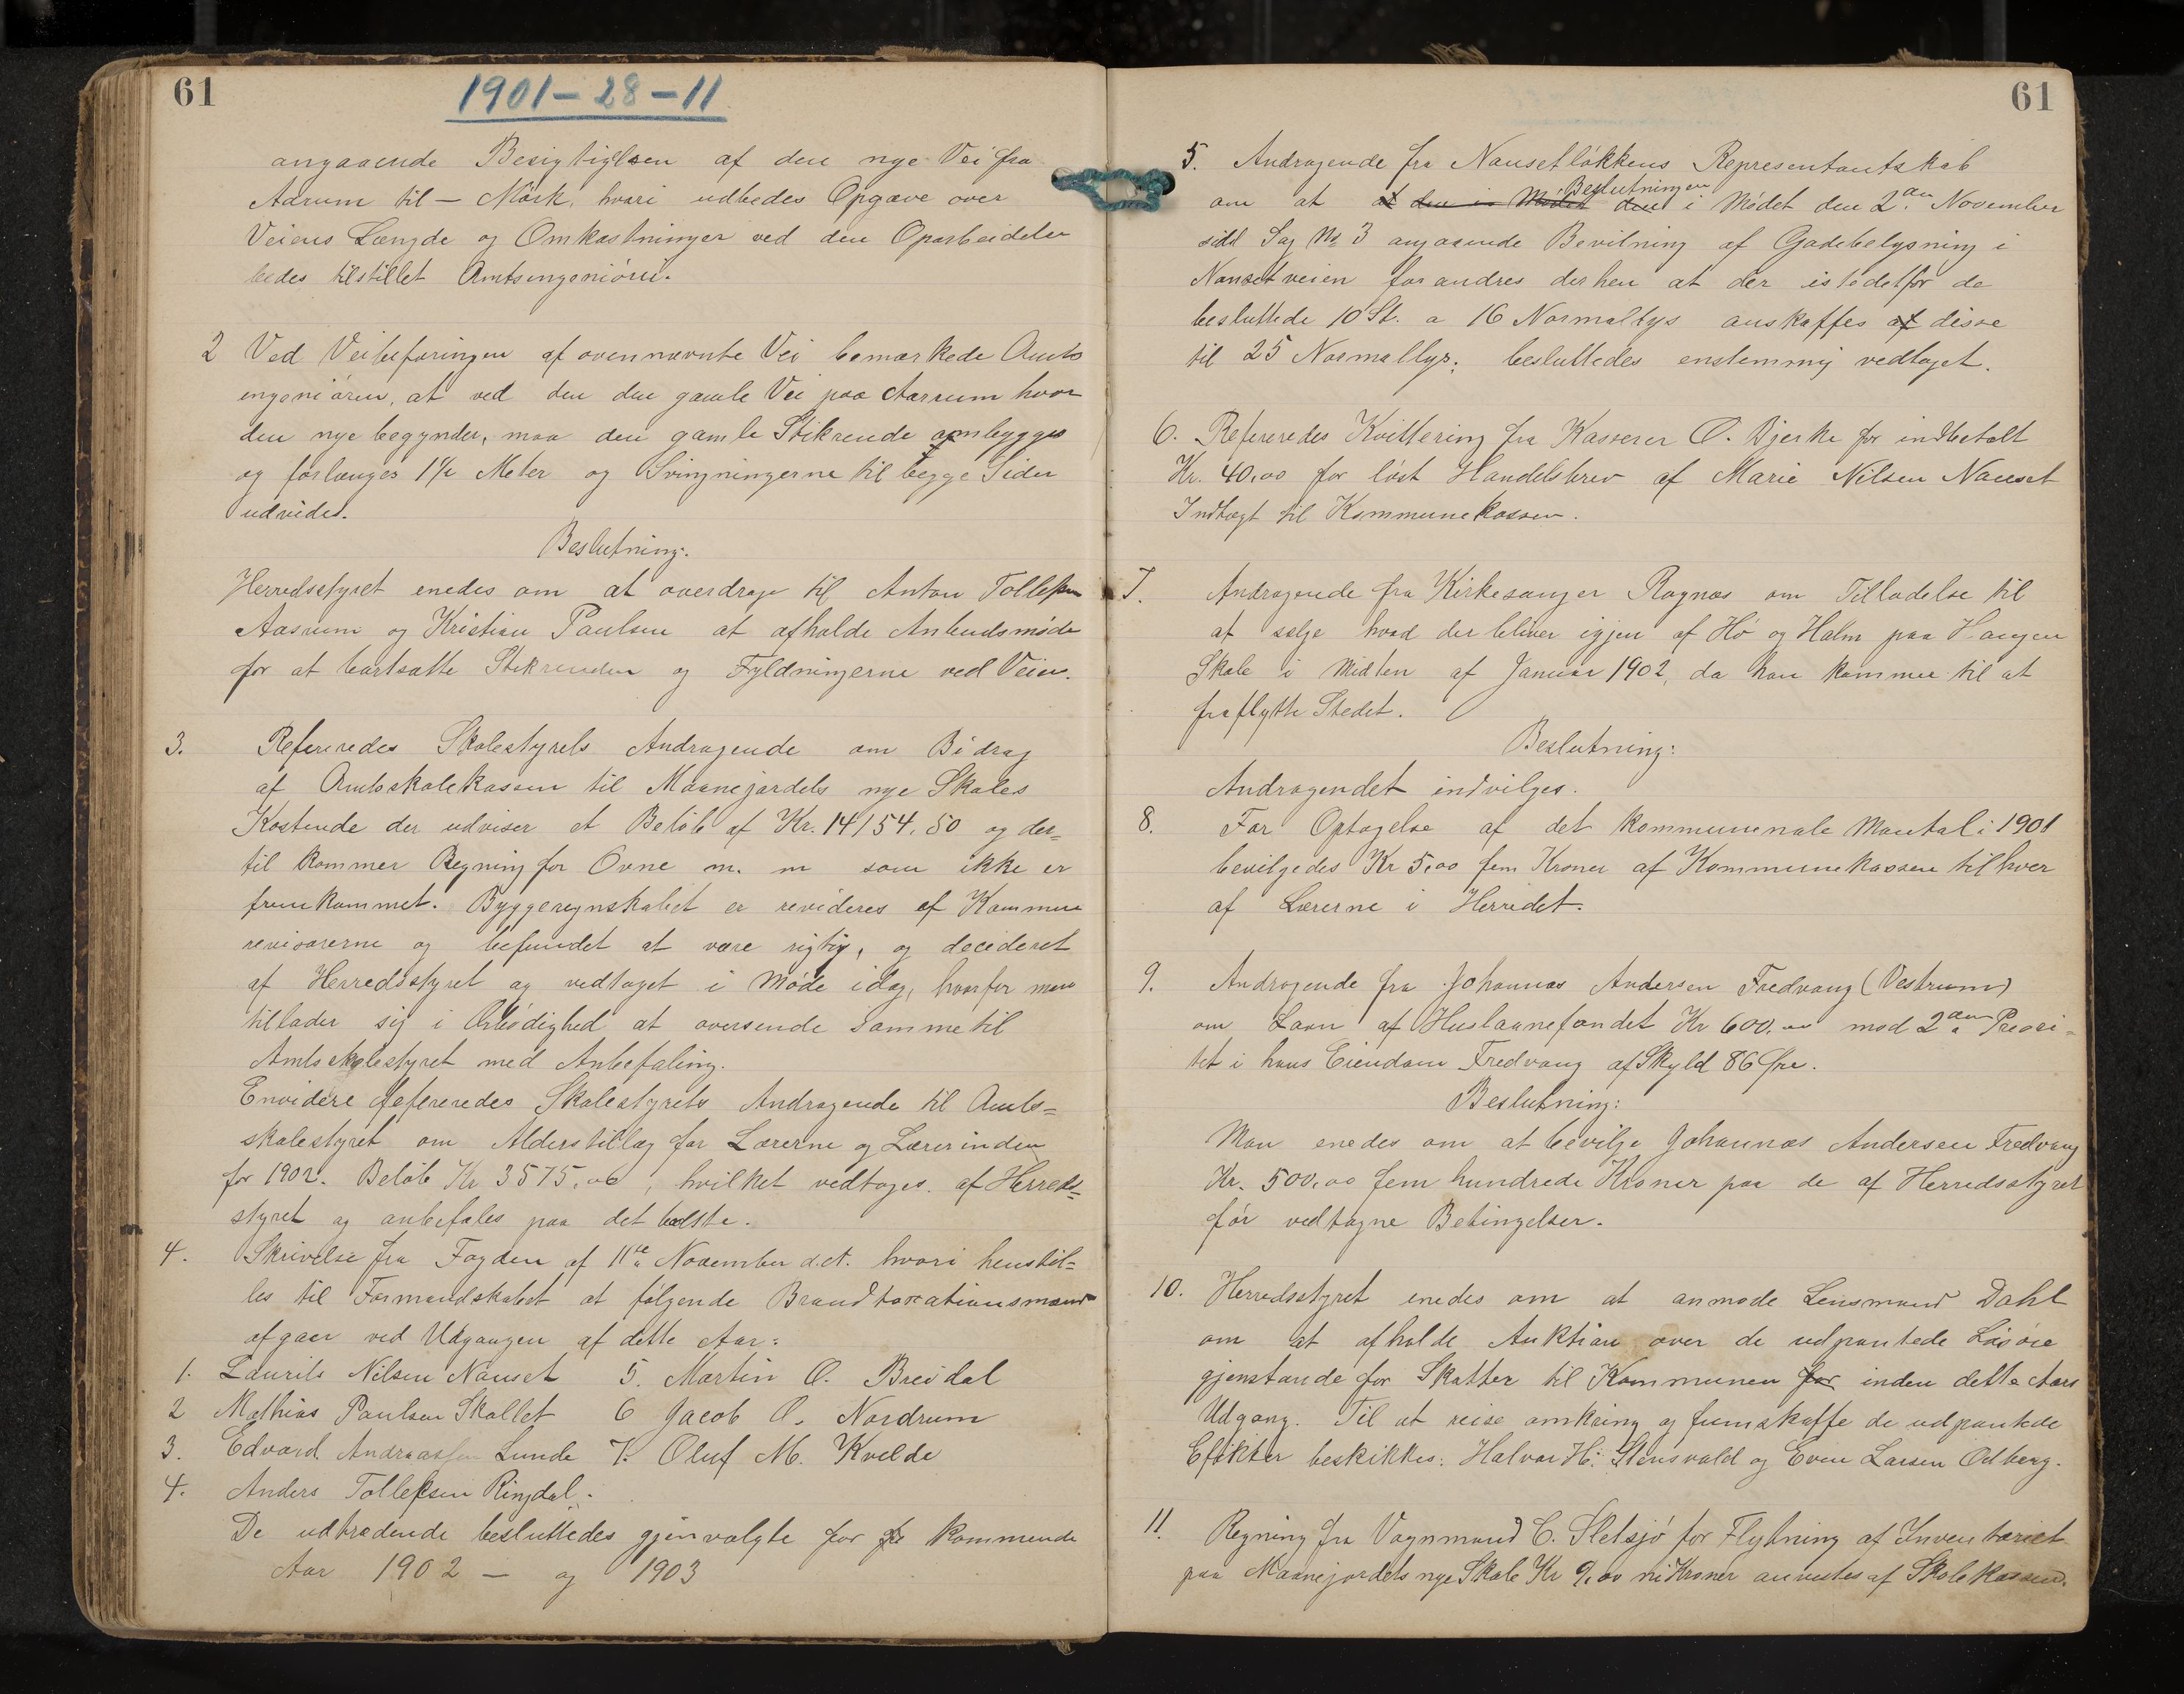 61
1901-28-11
angaaende Besigtigelsen af den nye Vei fra
Adrum til - Mørk, hvori udbedes Opgave over
Veiens Længde og Omkostninger ved den Oparbeidelse
bedes tilstillet Amtsingeniøren.
2 Ved Veibefaringen af ovennævnte Vei bemærkede Amts
ingeniøren, at ved den den gamle Vei paa Aarrum hvor
den nye begynder, maa den gamle Stikrende ombygges
og forlænges 1½ Meter og Svingningerne til begge Sider
udvides.
Beslutning:
Herredsstyret enedes om at overdrage til Anton Tollefsen
Aasrum og Kristian Paulsen at afholde Anbudsmøde
for at bortsætte Stikrenden og Fyldningerne ved Veien.
3. Refereredes Skolestyrets Andragende om Bidrag
af Amtsskolekassen til Maanejordets nye Skoles
Kostende der udviser et Beløb af Kr. 14154,50 og der=
til kommer Regning for Ovne m. m som ikke er
fremkommet. Byggeregnskabet er revideres af Kommune
revisorerne og befundet at være rigtig, og decideret
af Herredsstyret og vedtaget i Møde idag, hvorfor man
tillader sig i Ærbødighed at oversende samme til
Amtsskolestyret med Anbefaling.
Envidere refereredes Skolestyrets Andragende til Amts=
skolestyret om Alderstillæg for Lærerne og Lærerinden
for 1902. Beløb Kr 3575,00, hvilket vedtoges af Herreds=
styret og anbefales paa det bedste.
4. Skrivelse fra Fogden af 11te November d.A. hvori henstil=
les til Formandskabet at følgende Brandtaxationsmænd
afgaar ved Udgangen af dette Aar:
1. Laurits Nilsen Nauset 5. Martin O. Breidal
2 Mathias Paulsen Skallet 6 Jacob A. Nordrum
3. Edvard Andreassen Lunde 7. Oluf M. Kvelde
4. Anders Tollefsen Ringdal.
De udtrædende besluttedes gjenvalgte for de kommende
Aar 1902 — og 1903
61
5. Andragende fra Nansetløkkens Representantskab
om at at den i Mødet den Beslutningen i Mødet den 2den November
sidst Sag No 3 angaaende Bevilning af Gadebelysning i
Nansetveien forandres derhen at der istedetfor de
besluttede 10 St. a 16 Normallys anskaffes af disse
til 25 Normallys; besluttedes enstemmig vedtaget.
6. Refereredes Kvittering fra Kasserer O. Bjerke for indbetalt
Kr. 40,00 for løst Handelsbrev af Marie Nilsen Nauset
Indtægt til Kommunekassen.
7. Andragende fra Kirkesanger Ragnæs om Tilladelse til
at sælge hvad der bliver igjen af Hø og Halm paa Haugen
Skole i Midten af Januar 1902, da han kommer til at
fraflytte Stedet.
Beslutning:
Andragendet indvilges.
8. For Optagelse af det kommunenale Mantal i 1901
bevilgedes Kr 5,00 fem Kroner af Kommunekassen til hver
af Lærerne i Herredet.
9. Andragende fra Johannas Andersen Fredvang (Vestrum)
om Laan af Huslaanefondet Kr 600,00 mod 2den Priori-
tet i hans Eiendom Fredvang af Skyld 86 Øre.
Beslutning:
Man enedes om at bevilge Johannas Andersen Fredvang
Kr. 500,00 fem hundrede Kroner paa de af Herredsstyret
før vedtagne Betingelser.
10. Herredsstyret enedes om at anmode Lensmand Dahl
om at afholde Auktion over de udpantede Løsøre
gjenstande for Skatter til Kommunen for inden dette Aars
Udgang. Til at reise omkring og fremskaffe de udpantede
Efekter beskikkes: Halvor H. Stensvold og Even Larsen Odberg.
11. Regning fra Vognmand C. Sletsjø for Flytning af Inventariet
paa Maanejordets nye Skole Kr 9,00 ni Kroner anvistes af Skolekassen.